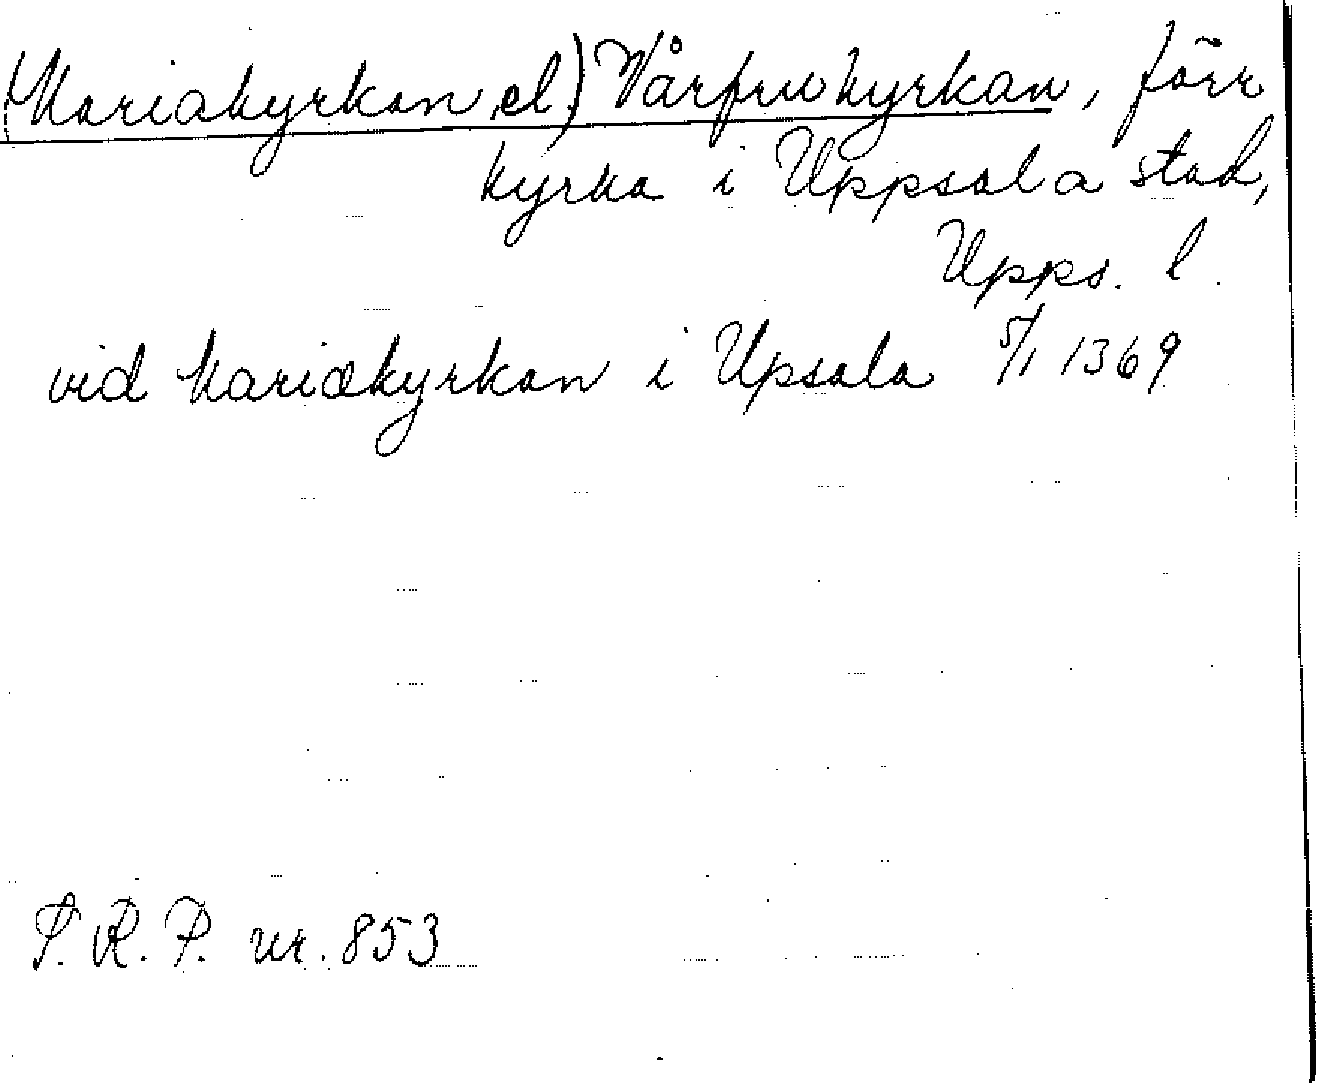 (Mariakyrkan el.) Vårfrukyrkan, förr
kyrka i Uppsala stad,
Upps. l.
vid Mariækyrkan i Upsala 5/1 1369
P. R. P. nr. 853